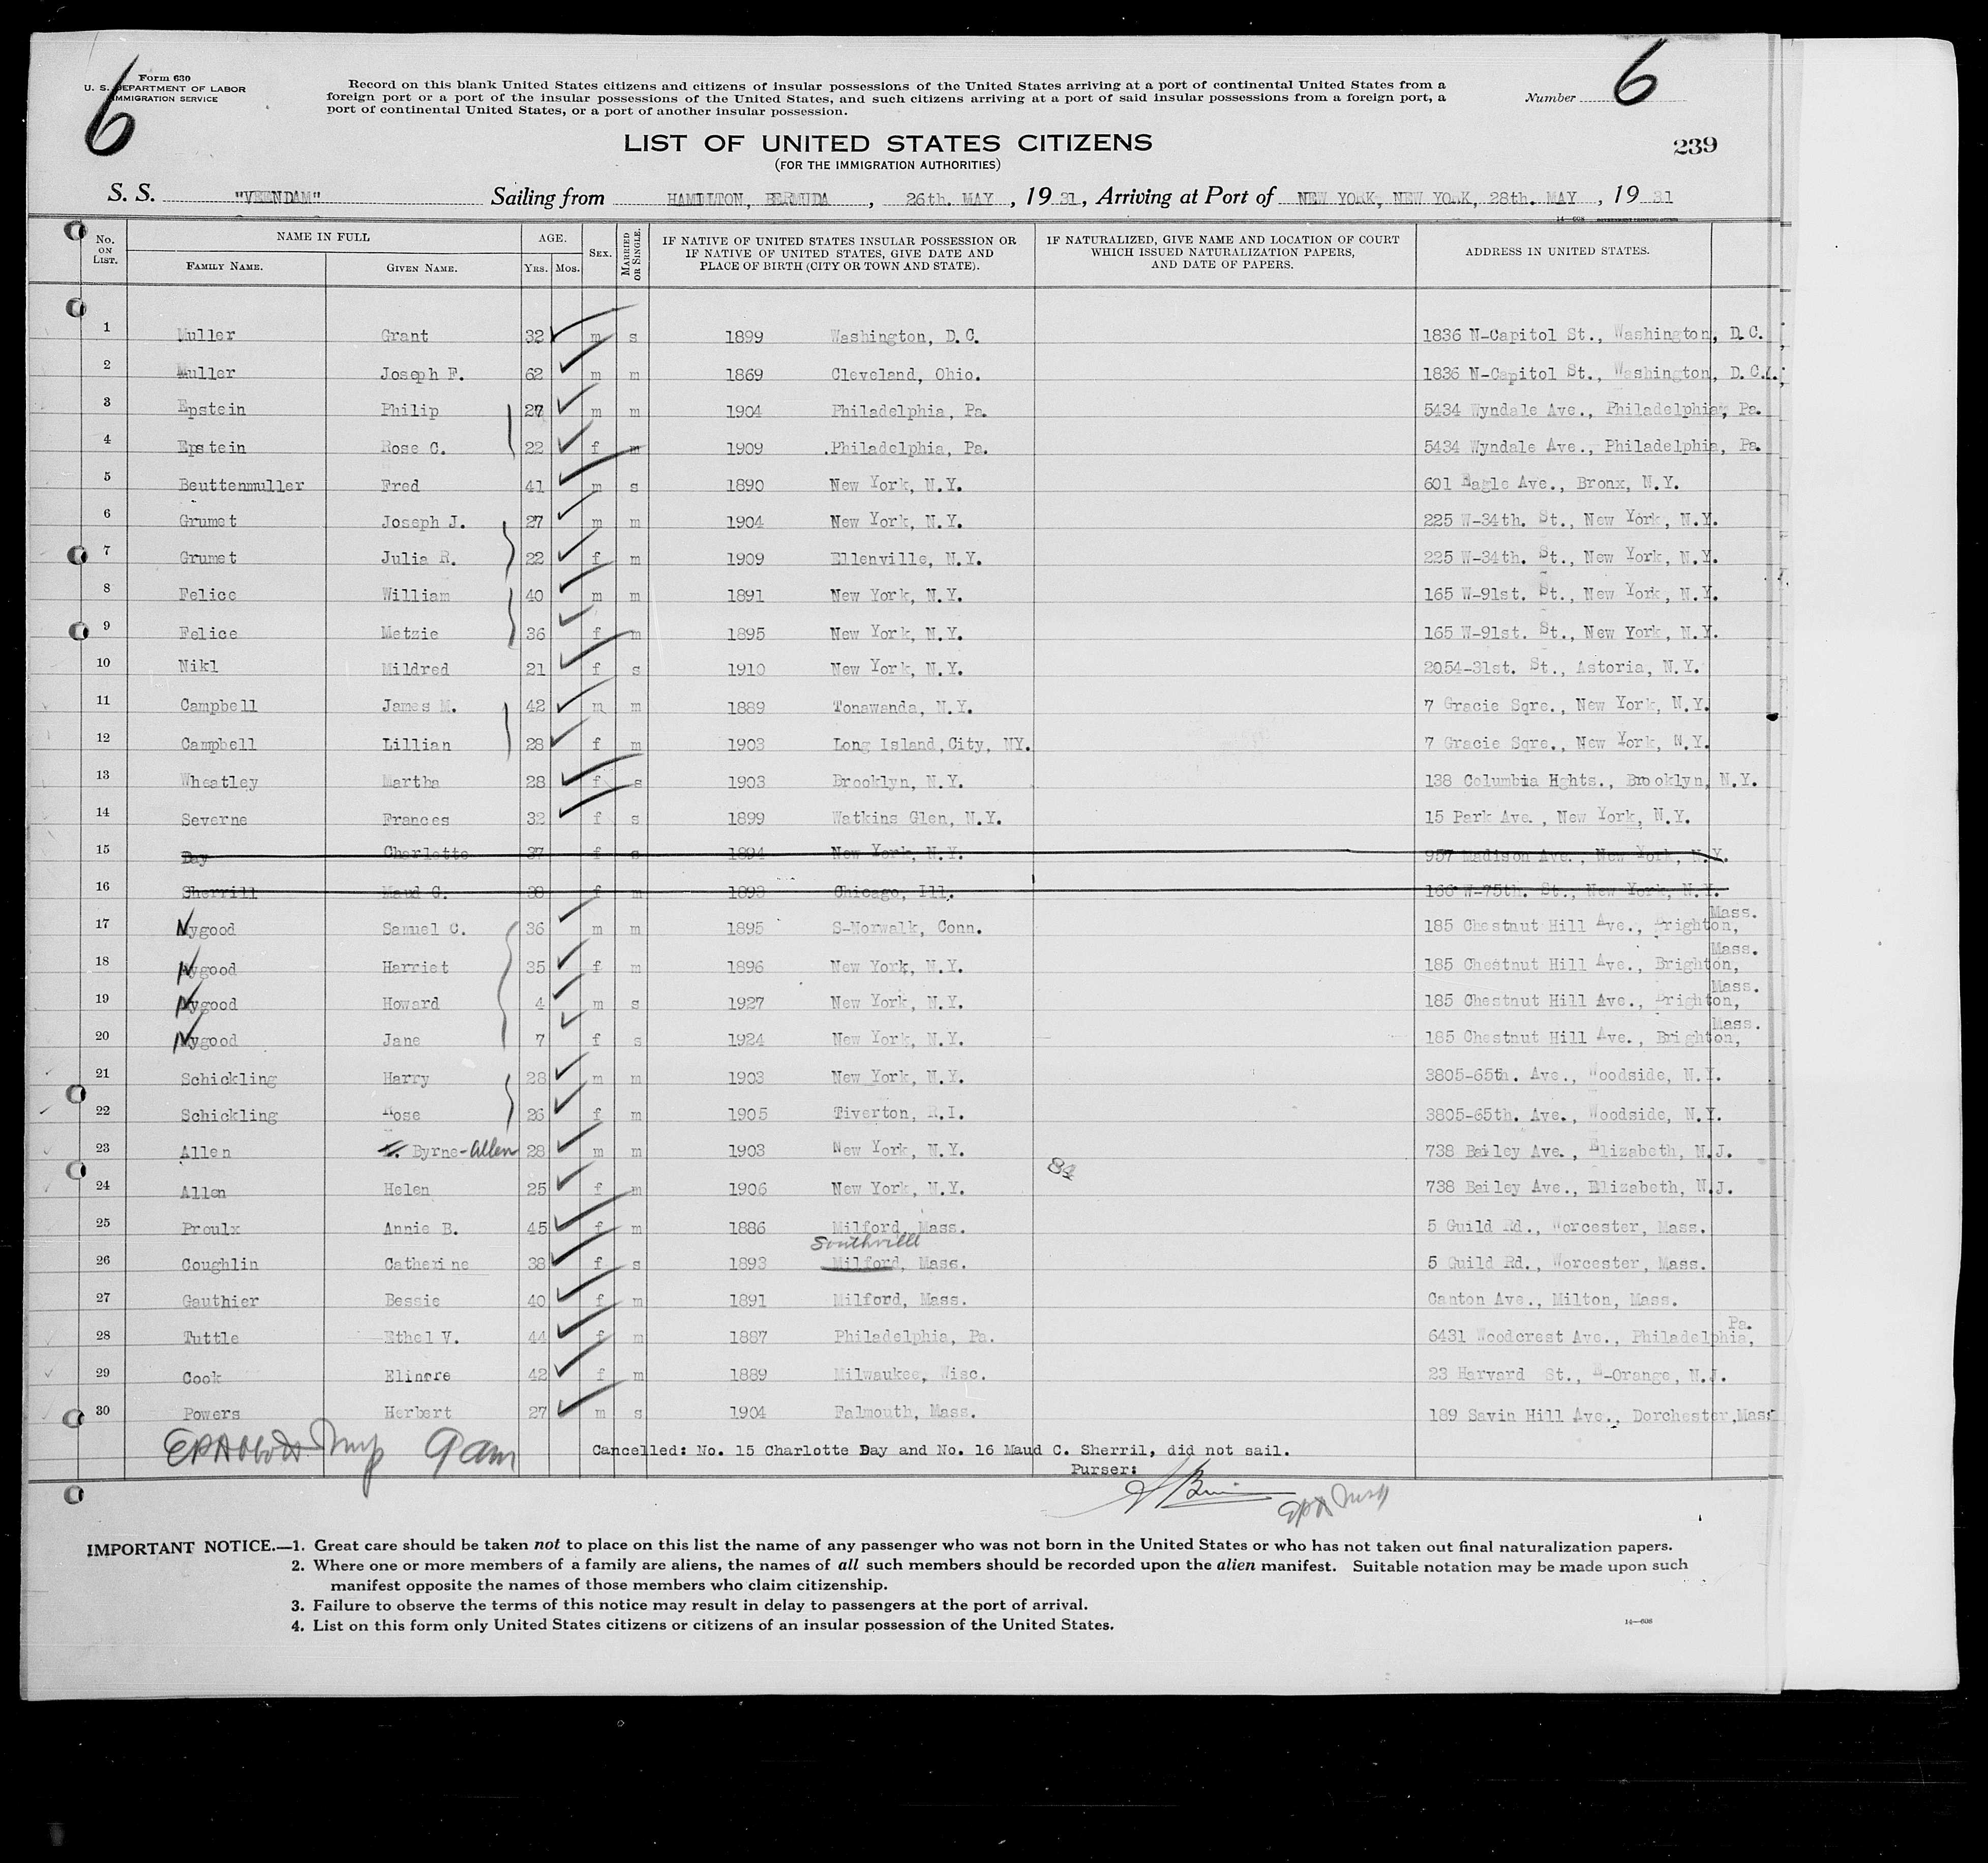 6
Form 630
U. S. DEPARTMENT OF LABOR
IMMIGRATION SERVICE
Record on this blank United States citizens and citizens of insular possessions of the United States arriving at a port of continental United States from a
foreign port or a port of the insular possessions of the United States, and such citizens arriving at a port of said insular possessions from a foreign port, a
port of continental United States, or a port of another insular possession.
Number 6
LIST OF UNITED STATES CITIZENS
(FOR THE IMMIGRATION AUTHORITIES)
239
S. S. "VEENDAM" Sailing from HAMILTON, BERMUDA, 26th. MAY, 1931, Arriving at Port of NEW YORK, NEW YORK, 28th. MAY, 1931
14-608 GOVERNMENT PRINTING OFFICE
No. ON LIST. NAME IN FULL FAMILY NAME. GIVEN NAME. AGE. YRS. MOS. SEX. MARRIED OR SINGLE. IF NATIVE OF UNITED STATES INSULAR POSSESSION OR IF NATIVE OF UNITED STATES, GIVE DATE AND PLACE OF BIRTH (CITY OR TOWN AND STATE). IF NATURALIZED, GIVE NAME AND LOCATION OF COURT WHICH ISSUED NATURALIZATION PAPERS, AND DATE OF PAPERS. ADDRESS IN UNITED STATES.
1 Muller Grant 32 m s 1899 Washington, D.C. 1836 N-Capitol St., Washington, D.C.
2 Muller Joseph F. 62 m m 1869 Cleveland, Ohio. 1836 N-Capitol St., Washington, D.C.
3 Epstein Philip 27 m m 1904 Philadelphia, Pa. 5434 Wyndale Ave., Philadelphia, Pa.
4 Epstein Rose C. 22 f m 1909 Philadelphia, Pa. 5434 Wyndale Ave., Philadelphia, Pa.
5 Beuttenmuller Fred 41 m s 1890 New York, N.Y. 601 Eagle Ave., Bronx, N.Y.
6 Grumet Joseph J. 27 m m 1904 New York, N.Y. 225 W-34th. St., New York, N.Y.
7 Grumet Julia R. 22 f m 1909 Ellenville, N.Y. 225 W-34th. St., New York, N.Y.
8 Felice William 40 m m 1891 New York, N.Y. 165 W-91st. St., New York, N.Y.
9 Felice Metzie 36 f m 1895 New York, N.Y. 165 W-91st. St., New York, N.Y.
10 Nikl Mildred 21 f s 1910 New York, N.Y. 2054-31st. St., Astoria, N.Y.
11 Campbell James M. 42 m m 1889 Tonawanda, N.Y. 7 Gracie Sqre., New York, N.Y.
12 Campbell Lillian 28 f m 1903 Long Island,City, NY. 7 Gracie Sqre., New York, N.Y.
13 Wheatley Martha 28 f s 1903 Brooklyn, N.Y. 138 Columbia Hghts., Brooklyn, N.Y.
14 Severne Frances 32 f s 1899 Watkins Glen, N.Y. 15 Park Ave., New York, N.Y.
15 Day Charlotte 37 f s 1894 New York, N.Y. 957 Madison Ave., New York, N.Y.
16 Sherrill Maud C. 38 f m 1893 Chicago, Ill. 166 W-75th. St., New York, N.Y.
17 Nygood Samuel C. 36 m m 1895 S-Norwalk, Conn. 185 Chestnut Hill Ave., Brighton, Mass.
18 Nygood Harriet 35 f m 1896 New York, N.Y. 185 Chestnut Hill Ave., Brighton, Mass.
19 Nygood Howard 4 m s 1927 New York, N.Y. 185 Chestnut Hill Ave., Brighton, Mass.
20 Nygood Jane 7 f s 1924 New York, N.Y. 185 Chestnut Hill Ave., Brighton, Mass.
21 Schickling Harry 28 m m 1903 New York, N.Y. 3805-65th. Ave., Woodside, N.Y.
22 Schickling Rose 26 f m 1905 Tiverton, R.I. 3805-65th. Ave., Woodside, N.Y.
23 Allen Byrne-Allen 28 m m 1903 New York, N.Y. 738 Bailey Ave., Elizabeth, N.J.
24 Allen Helen 25 f m 1906 New York, N.Y. 738 Bailey Ave., Elizabeth, N.J.
25 Proulx Annie B. 45 f m 1886 Milford, Mass. 5 Guild Rd., Worcester, Mass.
Southville
26 Coughlin Catherine 38 f s 1893 Milford, Mass. 5 Guild Rd., Worcester, Mass.
27 Gauthier Bessie 40 f m 1891 Milford, Mass. Canton Ave., Milton, Mass.
28 Tuttle Ethel V. 44 f m 1887 Philadelphia, Pa. 6431 Woodcrest Ave., Philadelphia, Pa.
29 Cook Elinore 42 f m 1889 Milwaukee, Wisc. 23 Harvard St., E-Orange, N.J.
30 Powers Herbert 27 m s 1904 Falmouth, Mass. 189 Savin Hill Ave., Dorchester,Mass
Cancelled: No. 15 Charlotte Day and No. 16 Maud C. Sherril, did not sail.
Purser:
IMPORTANT NOTICE.—1. Great care should be taken not to place on this list the name of any passenger who was not born in the United States or who has not taken out final naturalization papers.
2. Where one or more members of a family are aliens, the names of all such members should be recorded upon the alien manifest. Suitable notation may be made upon such
manifest opposite the names of those members who claim citizenship.
3. Failure to observe the terms of this notice may result in delay to passengers at the port of arrival.
4. List on this form only United States citizens or citizens of an insular possession of the United States.
14-608